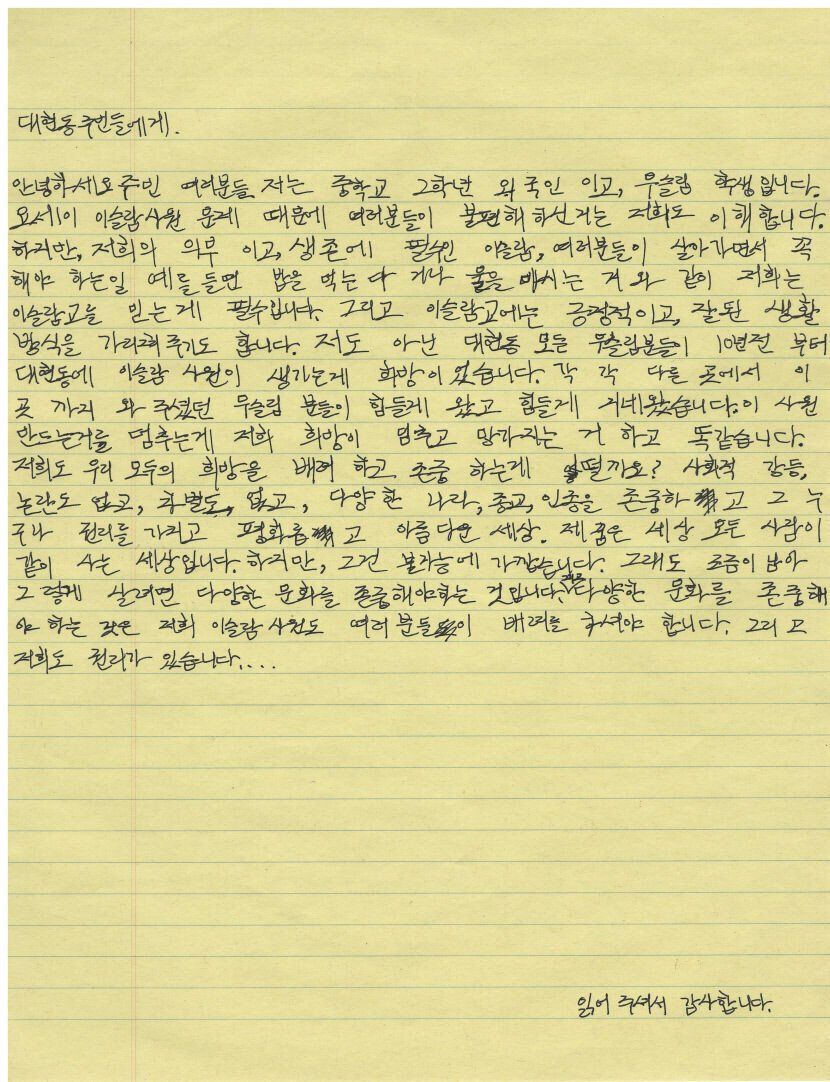 대현동 주민들에게.
안녕하세요 주민 여러분들 저는 중학교 2학년 외국인 이고, 무슬림 학생입니다.
요세이 이슬람사원 문제 때문에 여러분들이 불편해 하신거는 저희도 이해합니다.
하지만, 저희의 의무 이고, 생존에 필수인 이슬람, 여러분들이 살아가면서 꼭
해야 하는일 예를 들면 밥을 먹는다 거나 물을 마시는 거 와 같이 저희는
이슬람교를 믿는게 필수입니다. 그리고 이슬람교에는 긍정적이고, 잘된 생활
방식을 가리켜주기도 합니다. 저도 아닌 대현동 모든 무슬림분들이 10년전 부터
대현동에 이슬람 사원이 생기는게 희망이였습니다. 각 각 다른 곳에서 이
곳 까지 와 주셨던 무슬림 분들이 힘들게 왔고 힘들게 지네왔습니다. 이 사원
만드는거를 멈추는게 저희 희망이 멈추고 망가지는 거 하고 똑같습니다.
저희도 우리 모두의 희망을 배려 하고 존중 하는게 어떨까요? 사회적 갈등,
논란도 없고, 차별도, 없고, 다양한 나라, 종교, 인종을 존중하고 그 누
구나 권리를 가지고 평화롭고 아름다운 세상. 제 꿈은 세상 모든 사람이
같이 사는 세상입니다. 하지만, 그건 불가능에 가깝습니다. 그래도 조금이 남아
그렇게 살려면 다양한 문화를 존중해야하는 것입니다. 다양한 문화를 존중해
야 하는 것은 저희 이슬람사원도 여러분들이 배려를 하셔야 합니다. 그리고
저희도 권리가 있습니다....
읽어 주셔서 감사합니다.